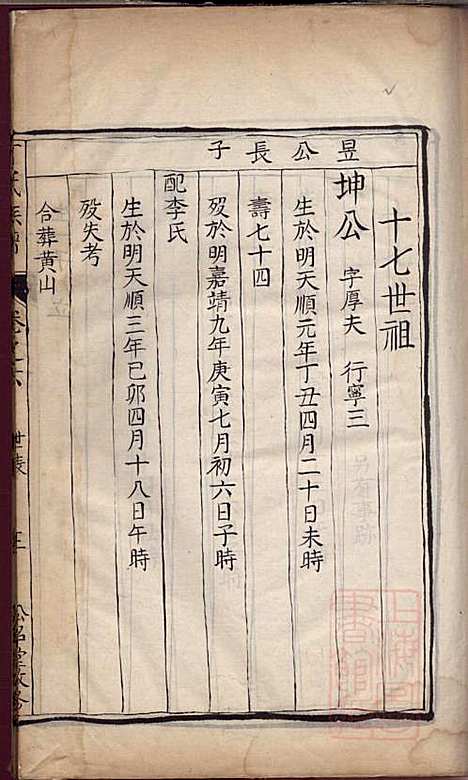 十七世祖
昱公長子
坤公 字厚夫 行寧三
生於明天順元年丁丑四月二十日未時
壽七十四
歿於明嘉靖九年庚寅七月初六日子時
配李氏
生於明天順三年己卯四月十八日午時
歿失考
合葬黃山
氏族譜
卷之六
世表